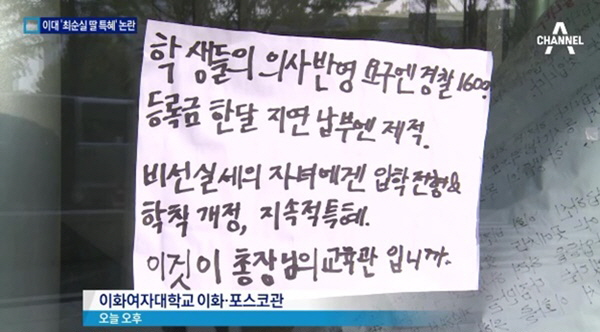 이대 '최순실 딸 특혜' 논란
CHANNEL A
학생들의 의사반영 요구엔 경찰1600.
등록금 한달 지연 납부엔 제적.
비선실세의 자녀에겐 입학전형&
학칙 개정, 지속적특혜.
이것이 총장님의 교육관 입니까.
이화여자대학교 이화·포스코관
오늘 오후